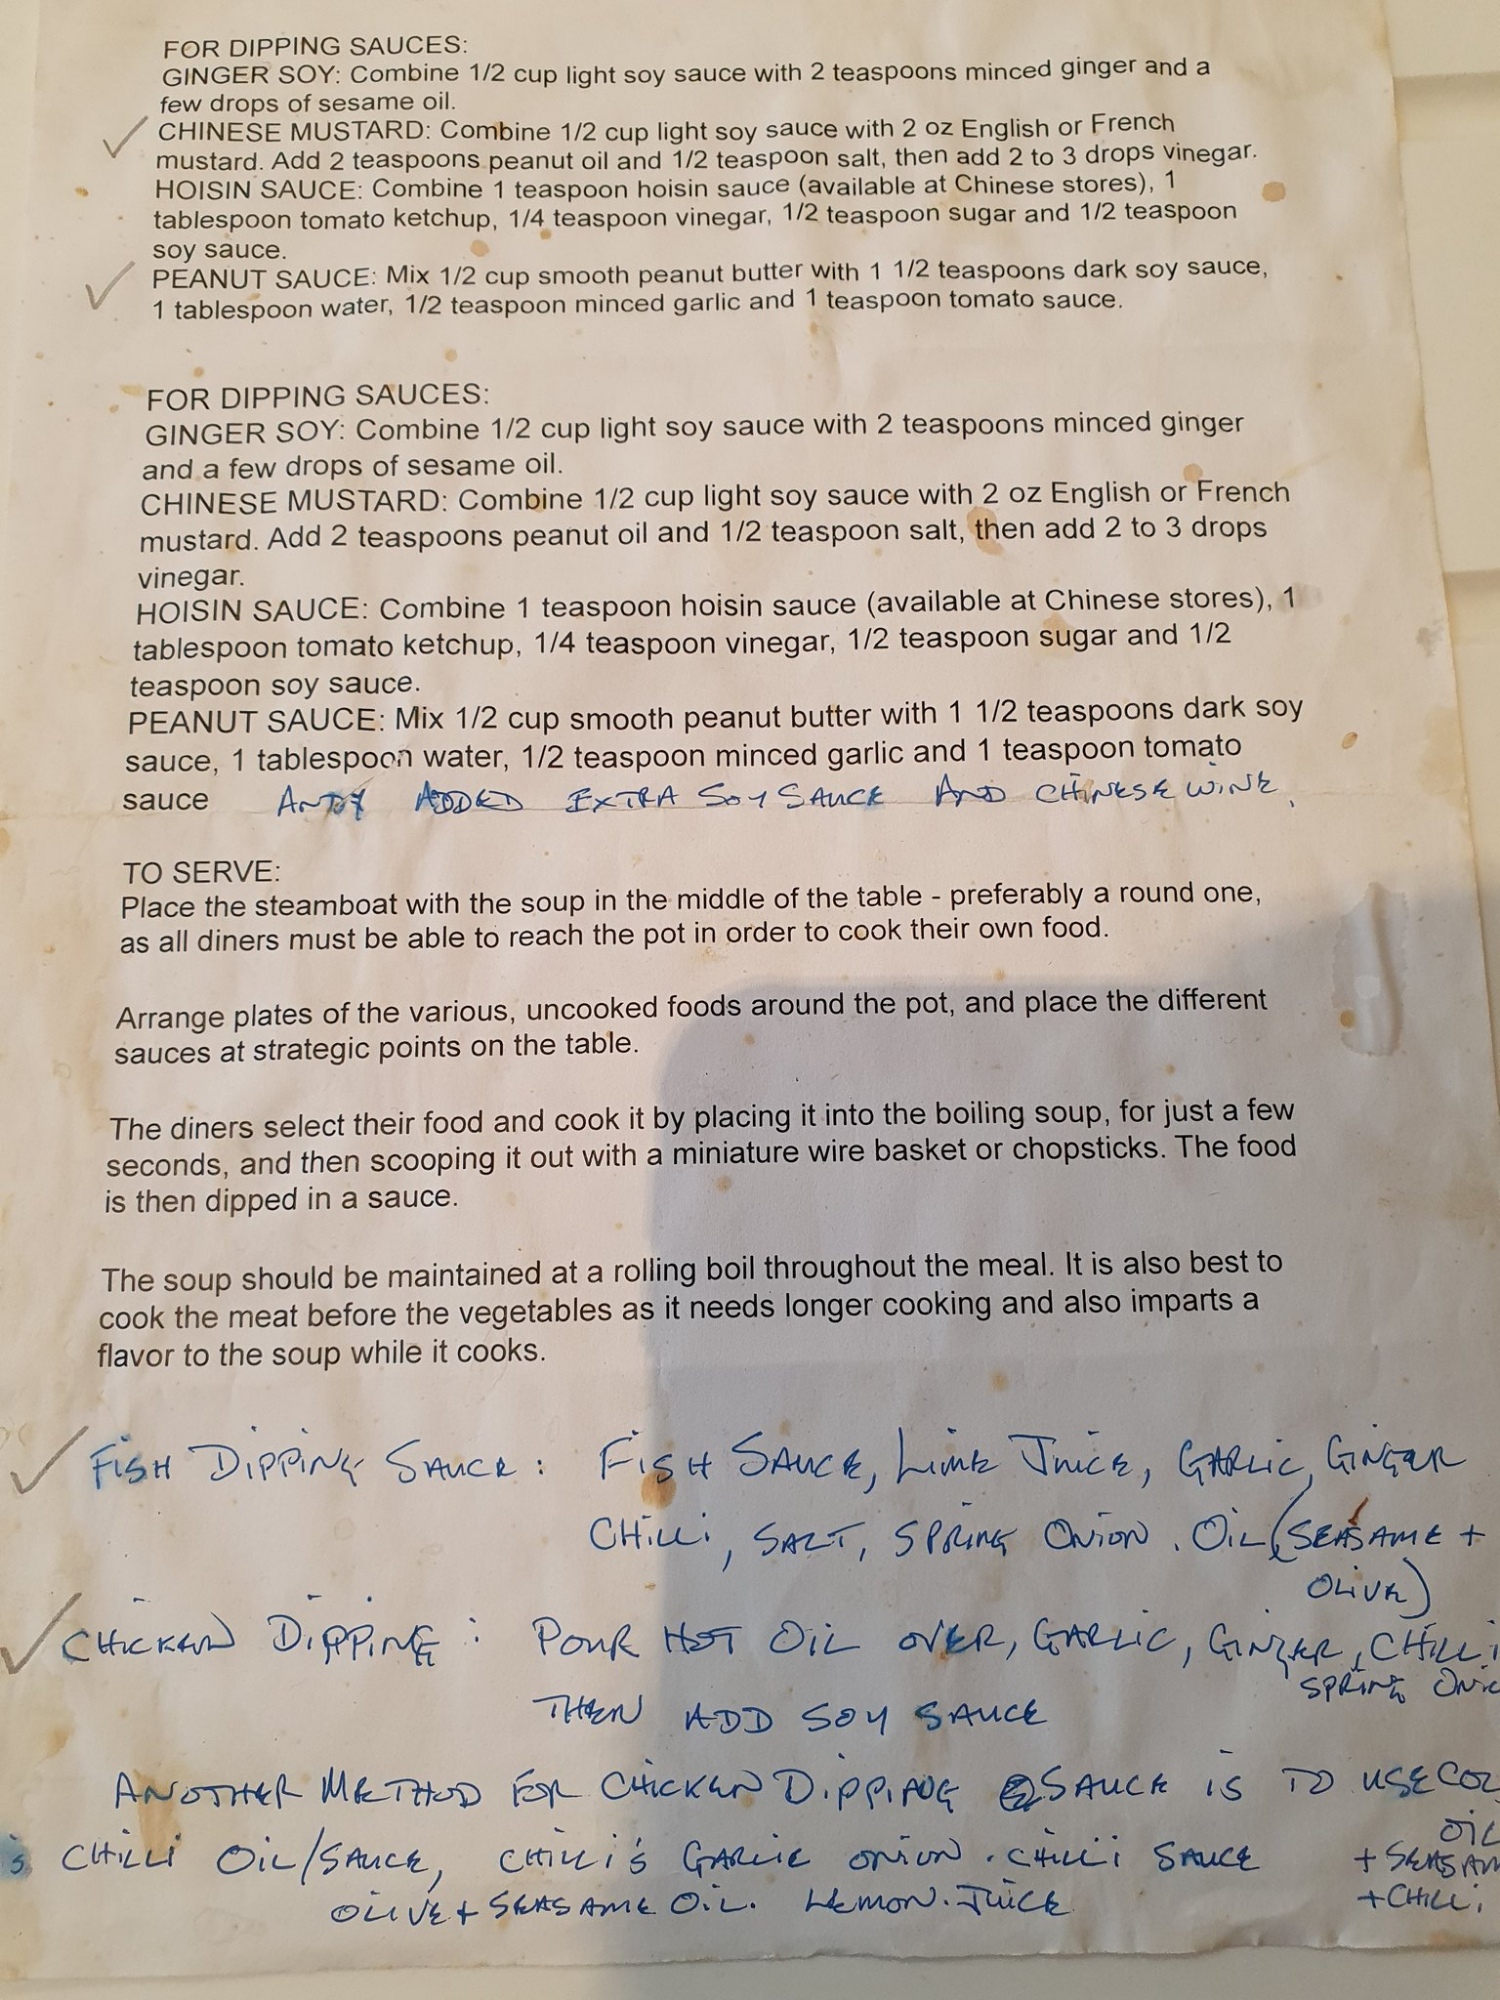 FOR DIPPING SAUCES:
GINGER SOY: Combine 1/2 cup light soy sauce with 2 teaspoons minced ginger and a
few drops of sesame oil.
CHINESE MUSTARD: Combine 1/2 cup light soy sauce with 2 oz English or French
mustard. Add 2 teaspoons peanut oil and 1/2 teaspoon salt, then add 2 to 3 drops vinegar.
HOISIN SAUCE: Combine 1 teaspoon hoisin sauce (available at Chinese stores), 1
tablespoon tomato ketchup, 1/4 teaspoon vinegar, 1/2 teaspoon sugar and 1/2 teaspoon
soy sauce.
PEANUT SAUCE: Mix 1/2 cup smooth peanut butter with 1 1/2 teaspoons dark soy sauce,
1 tablespoon water, 1/2 teaspoon minced garlic and 1 teaspoon tomato sauce.
FOR DIPPING SAUCES:
GINGER SOY: Combine 1/2 cup light soy sauce with 2 teaspoons minced ginger
and a few drops of sesame oil.
CHINESE MUSTARD: Combine 1/2 cup light soy sauce with 2 oz English or French
mustard. Add 2 teaspoons peanut oil and 1/2 teaspoon salt, then add 2 to 3 drops
vinegar.
HOISIN SAUCE: Combine 1 teaspoon hoisin sauce (available at Chinese stores), 1
tablespoon tomato ketchup, 1/4 teaspoon vinegar, 1/2 teaspoon sugar and 1/2
teaspoon soy sauce.
PEANUT SAUCE: Mix 1/2 cup smooth peanut butter with 1 1/2 teaspoons dark soy
sauce, 1 tablespoon water, 1/2 teaspoon minced garlic and 1 teaspoon tomato
sauce ANDY ADDED EXTRA SOY SAUCE AND CHINESE WINE.
TO SERVE:
Place the steamboat with the soup in the middle of the table - preferably a round one,
as all diners must be able to reach the pot in order to cook their own food.
Arrange plates of the various, uncooked foods around the pot, and place the different
sauces at strategic points on the table.
The diners select their food and cook it by placing it into the boiling soup, for just a few
seconds, and then scooping it out with a miniature wire basket or chopsticks. The food
is then dipped in a sauce.
The soup should be maintained at a rolling boil throughout the meal. It is also best to
cook the meat before the vegetables as it needs longer cooking and also imparts a
flavor to the soup while it cooks.
FISH DIPPING SAUCE: FISH SAUCE, LIME JUICE, GARLIC, GINGER
CHILLI, SALT, SPRING ONION. OIL (SEASAME +
OLIVE)
CHICKEN DIPPING: POUR HOT OIL OVER, GARLIC, GINGER, CHILLI
SPRING
THEN ADD SOY SAUCE
ANOTHER METHOD FOR CHICKEN DIPPING SAUCE IS TO USE
OIL
CHILLI OIL/SAUCE, CHILLI'S GARLIC ONION. CHILLI SAUCE +
OLIVE + SEASAME OIL. LEMON. JUICE +CHILLI